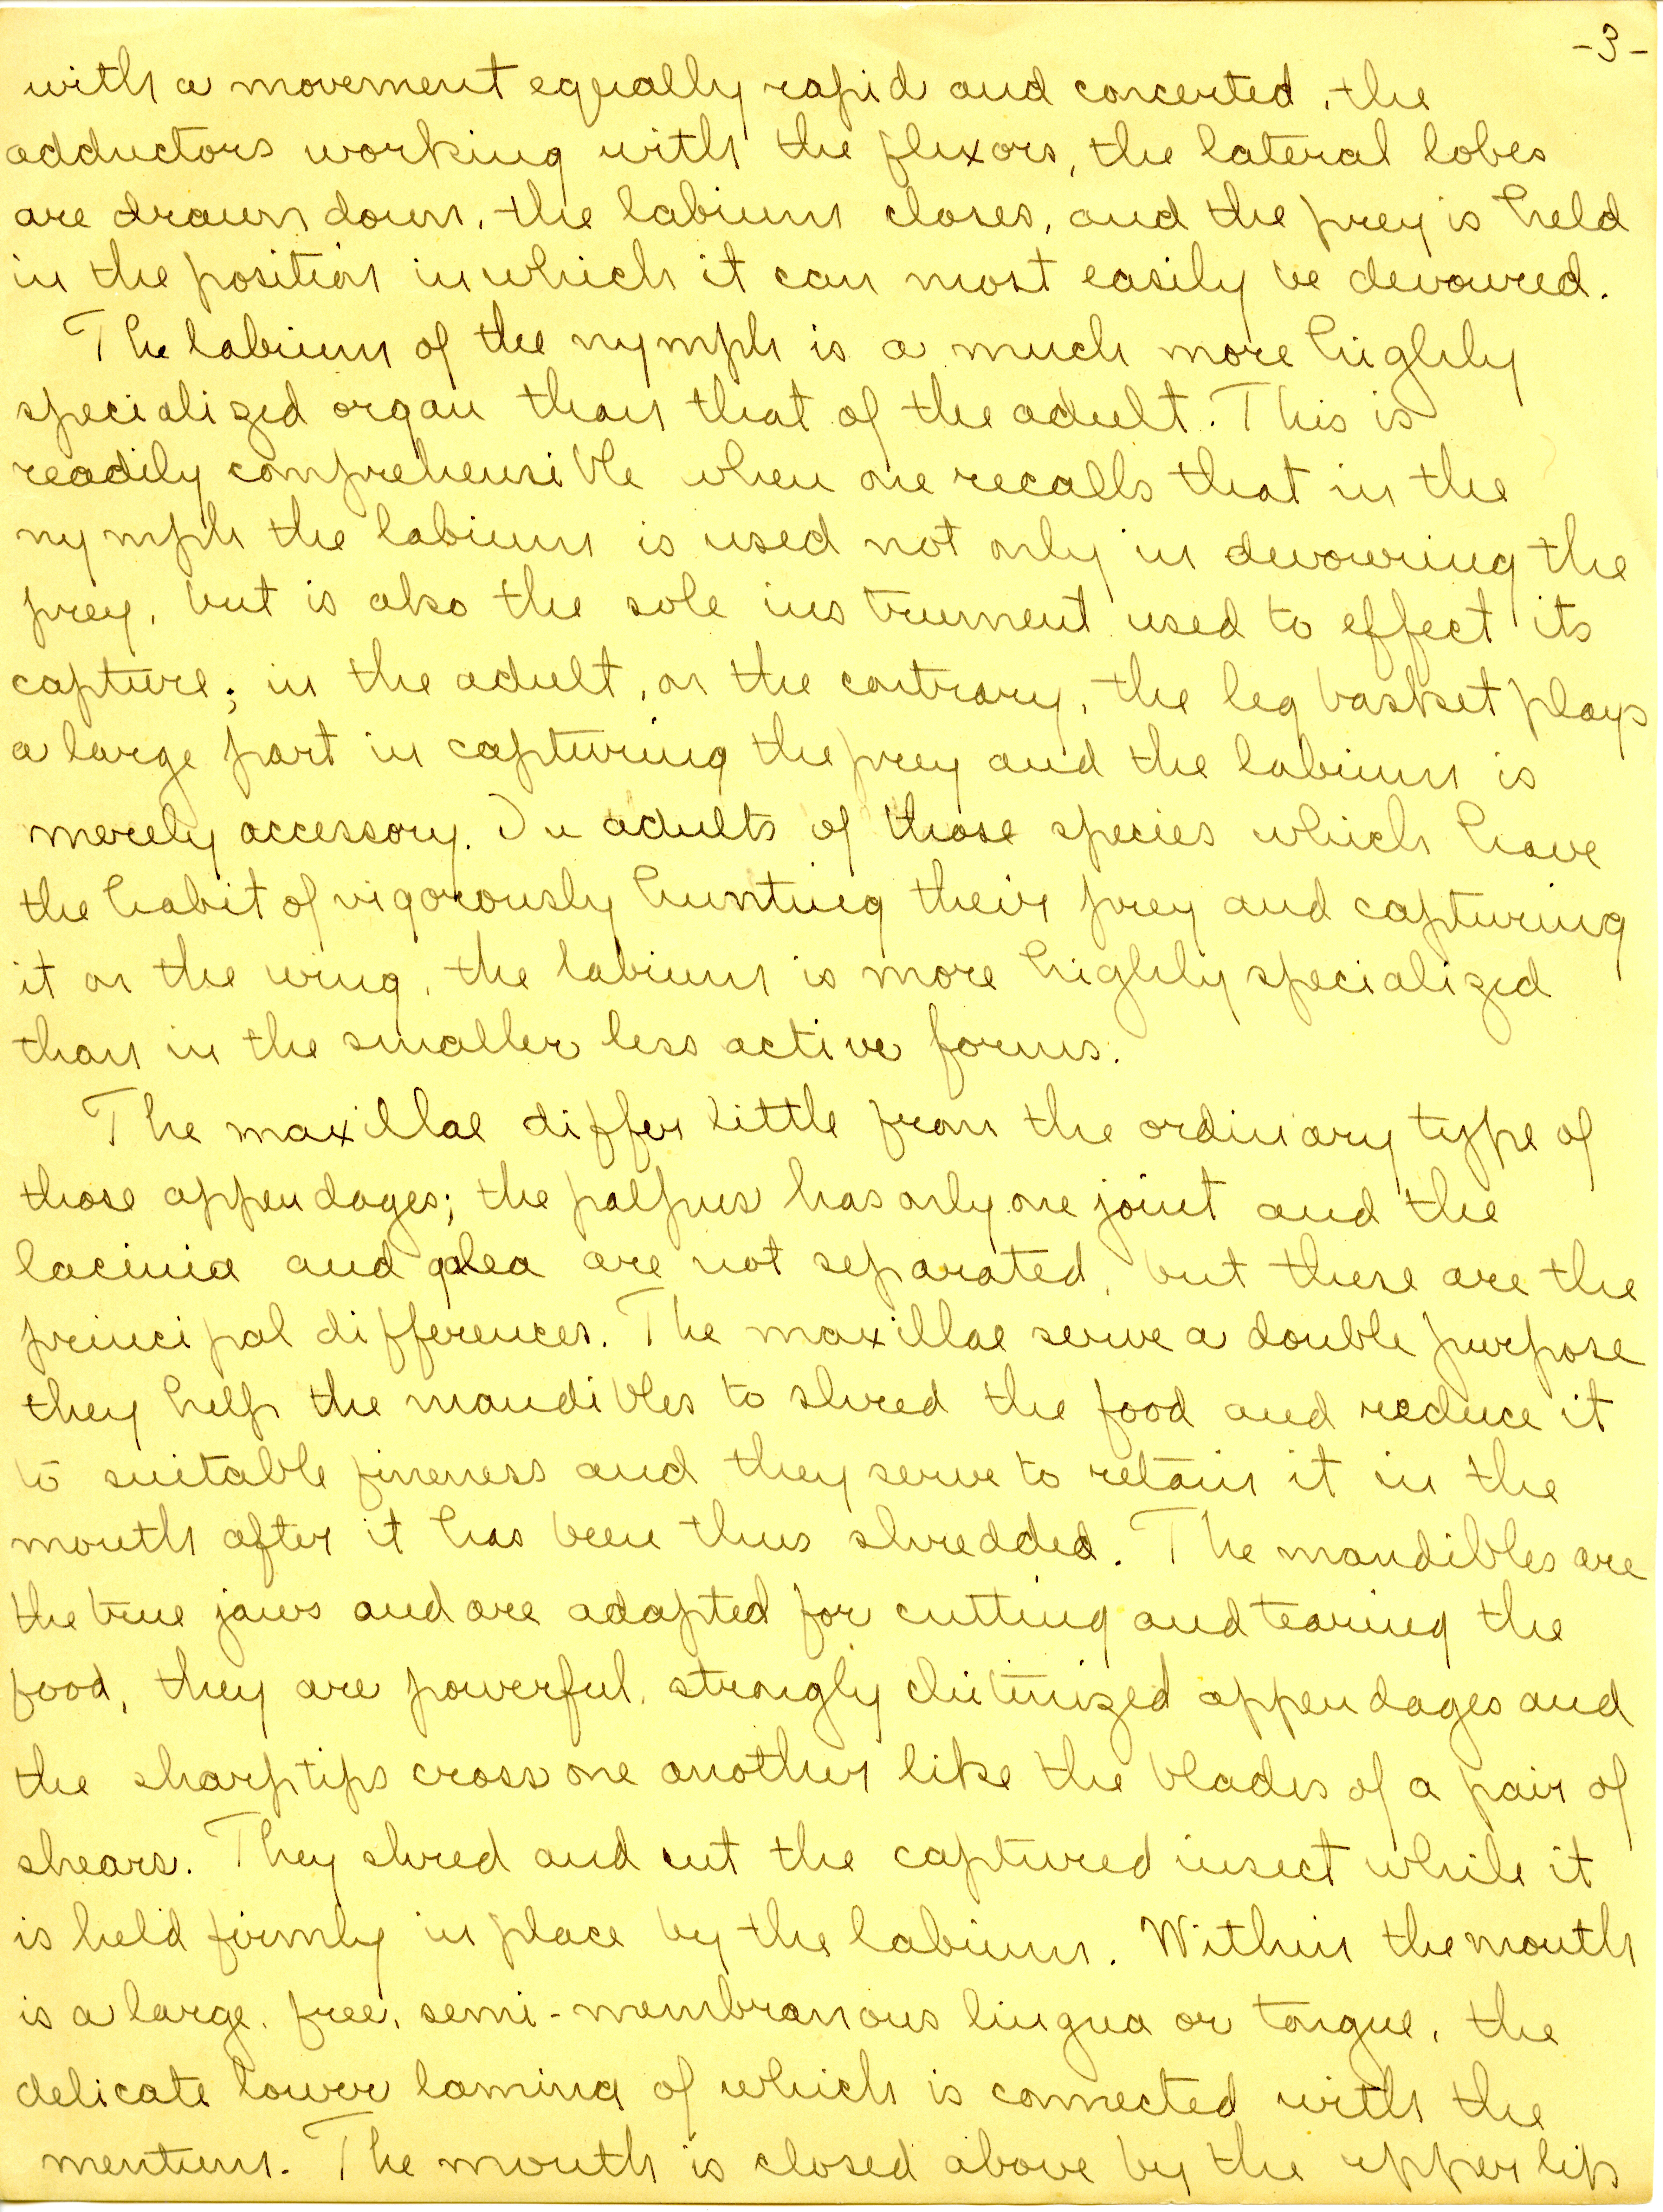 -3-
with a movement equally rapid and concerted, the
adductors working with the flexors, the lateral lobes
are drawn down, the labium closes, and the prey is held
in the position in which it can most easily be devoured.
The labium of the nymph is a much more highly
specialized organ than that of the adult. This is
readily comprehensible when one recalls that in the
nymph the labium is used not only in devouring the
prey, but is also the sole instrument used to effect its
capture; in the adult, on the contrary, the leg basket plays
a large part in capturing the prey and the labium is
merely accessory. In adults of those species which have
the habit of vigorously hunting their prey and capturing
it on the wing, the labium is more highly specialized
than in the smaller less active forms.
The maxillae differ little from the ordinary type of
those appendages; the palpus has only one joint and the
lacinia and galea are not separated, but these are the
principal differences. The maxillae serve a double purpose
they help the mandibles to shred the food and reduce it
to suitable fineness and they serve to retain it in the
mouth after it has been thus shredded. The mandibles are
the true jaws and are adapted for cutting and tearing the
food, they are powerful, strongly chitinized appendages and
the sharp tips cross one another like the blades of a pair of
shears. They shred and cut the captured insect while it
is held firmly in place by the labium. Within the mouth
is a large, free, semi-membranous lingua or tongue, the
delicate lower lamina of which is connected with the
mentum. The mouth is closed above by the upper lip